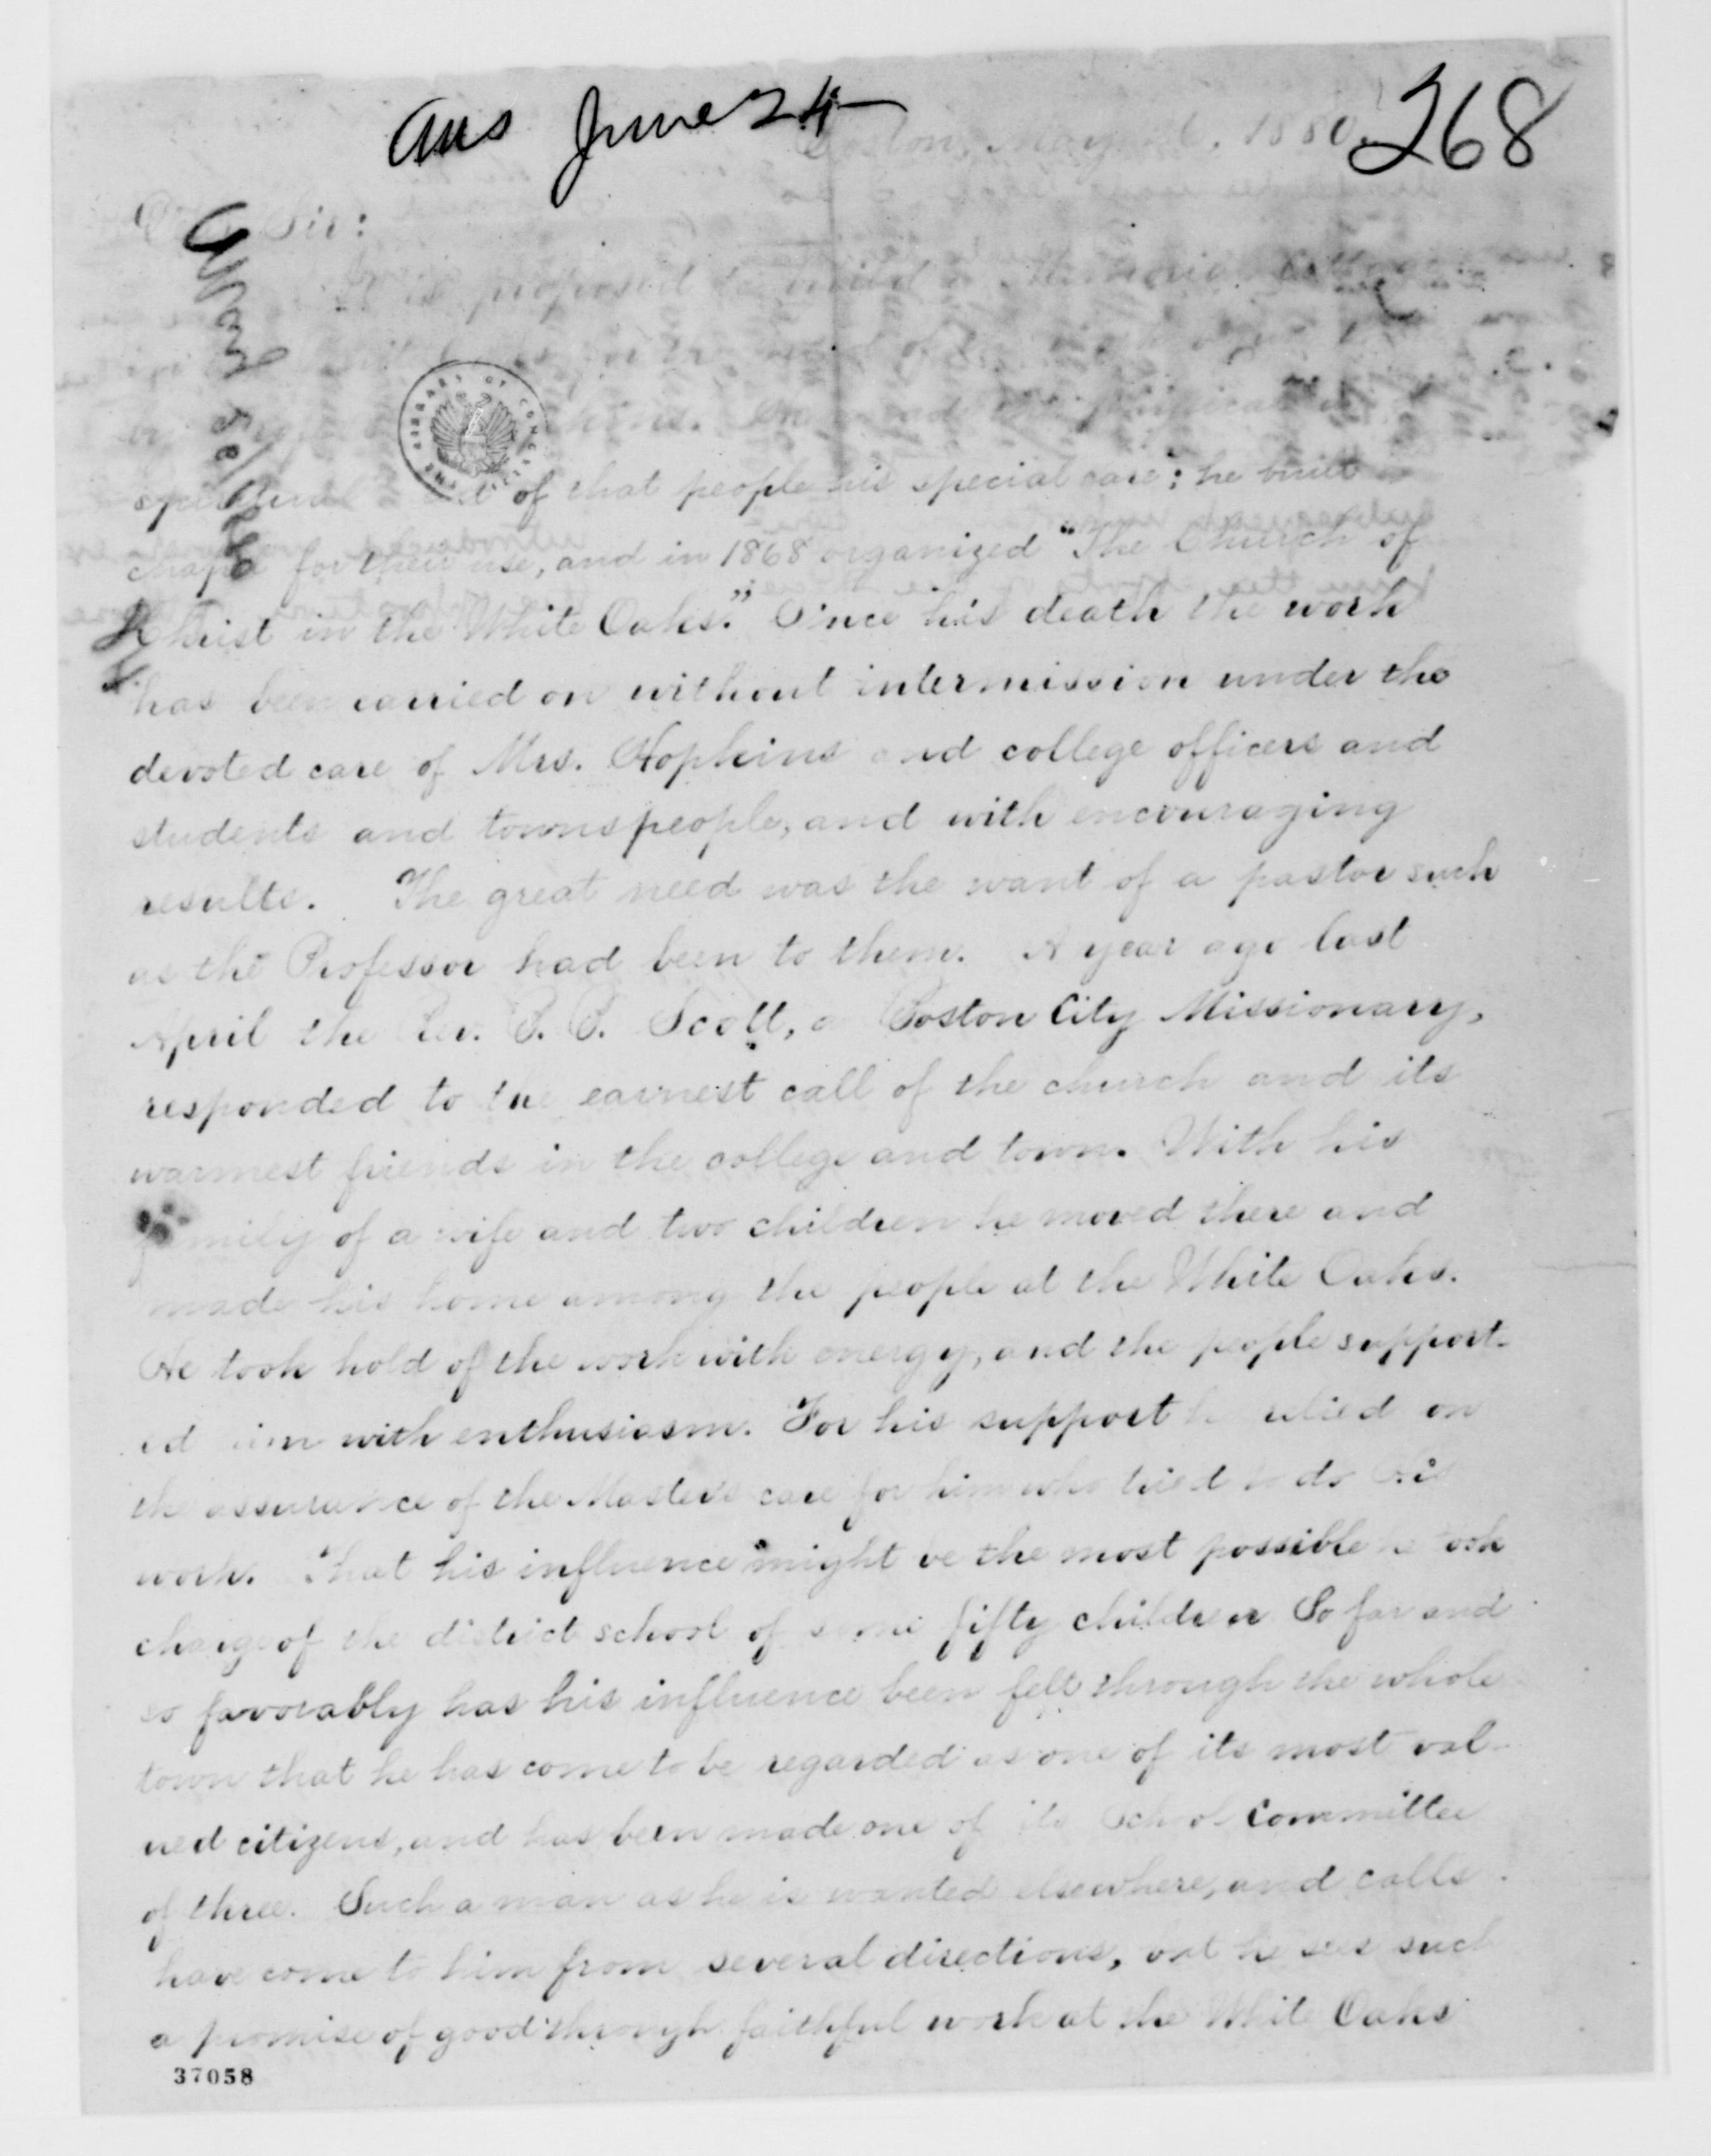 Ans June 24
268
Boston, May 1880.
Sir:
It is proposed to build a Memorial
of
kins.
spiritual of that people his special care; he built
chapel for their use, and in 1868 organized "The Church of
Christ in the White Oaks." Since his death the work
has been carried on without intermission under the
devoted care of Mrs. Hopkins and college officers and
students and townspeople, and with encouraging
results. The great need was the want of a pastor such
as the Professor had been to them. A year ago last
April the Rev. Scott, a Boston City Missionary,
responded to the earnest call of the church and its
warmest friends in the college and town. With his
family of a wife and two children he moved there and
made his home among the people at the White Oaks.
He took hold of the work with energy, and the people support-
ed him with enthusiasm. For his support he relied on
the assurance of the Master's care for him who tried to do His
work. That his influence might be the most possible he took
charge of the district school of some fifty children So far and
so favorably has his influence been felt through the whole
town that he has come to be regarded as one of its most val-
ued citizens, and has been made one of its School Committee
of three. Such a man as he is wanted elsewhere, and calls
have come to him from several directions, but he sees such
a promise of good through faithful work at the White Oaks
37058
LIBRARY OF CONGRESS